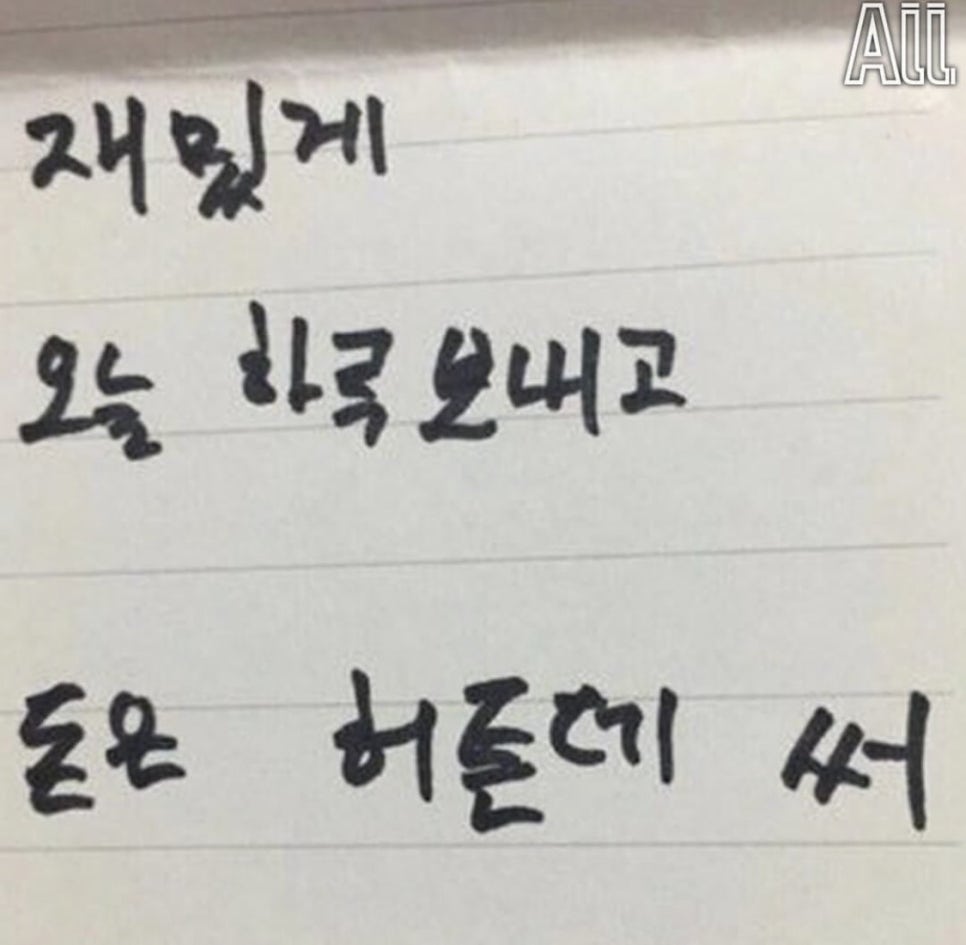 All
재밌게
오늘 하루 보내고
돈은 허튼데 써